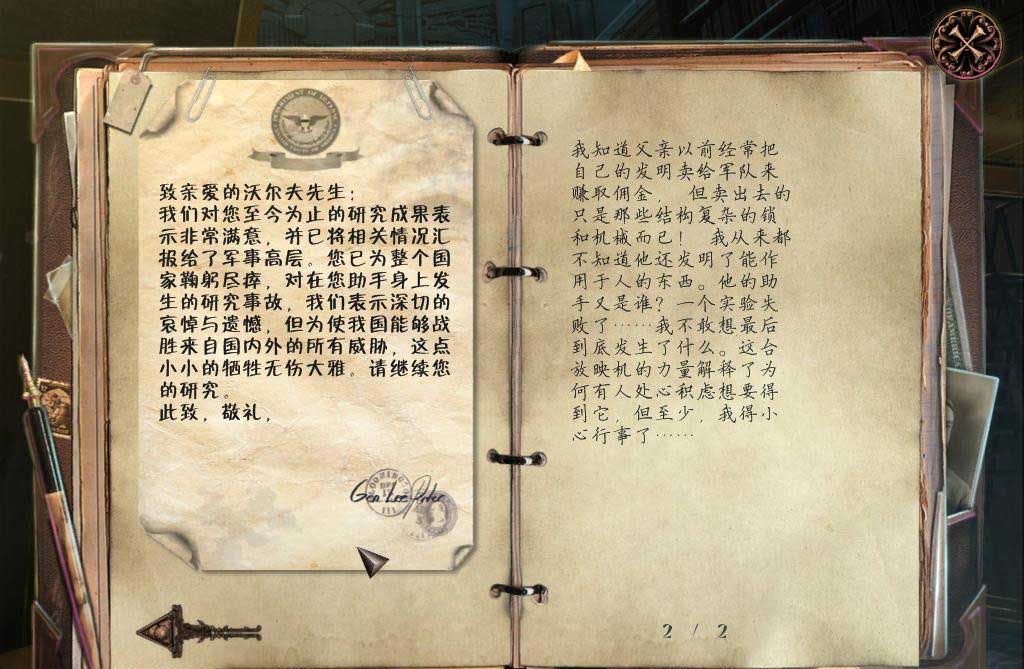 致亲爱的沃尔夫先生：
我们对您至今为止的研究成果表
示非常满意，并已将相关情况汇
报给了军事高层。您已为整个国
家鞠躬尽瘁，对在您助手身上发
生的研究事故，我们表示深切的
哀悼与遗憾，但为使我国能够战
胜来自国内外的所有威胁，这点
小小的牺牲无伤大雅。请继续您
的研究。
此致，敬礼，
我知道父亲以前经常把
自己的发明卖给军队来
赚取佣金， 但卖出去的
只是那些结构复杂的锁
和机械而已！ 我从来都
不知道他还发明了能作
用于人的东西。他的助
手又是谁？一个实验失
败了……我不敢想最后
到底发生了什么。这台
放映机的力量解释了为
何有人处心积虑想要得
到它，但至少，我得小
心行事了……
2 / 2